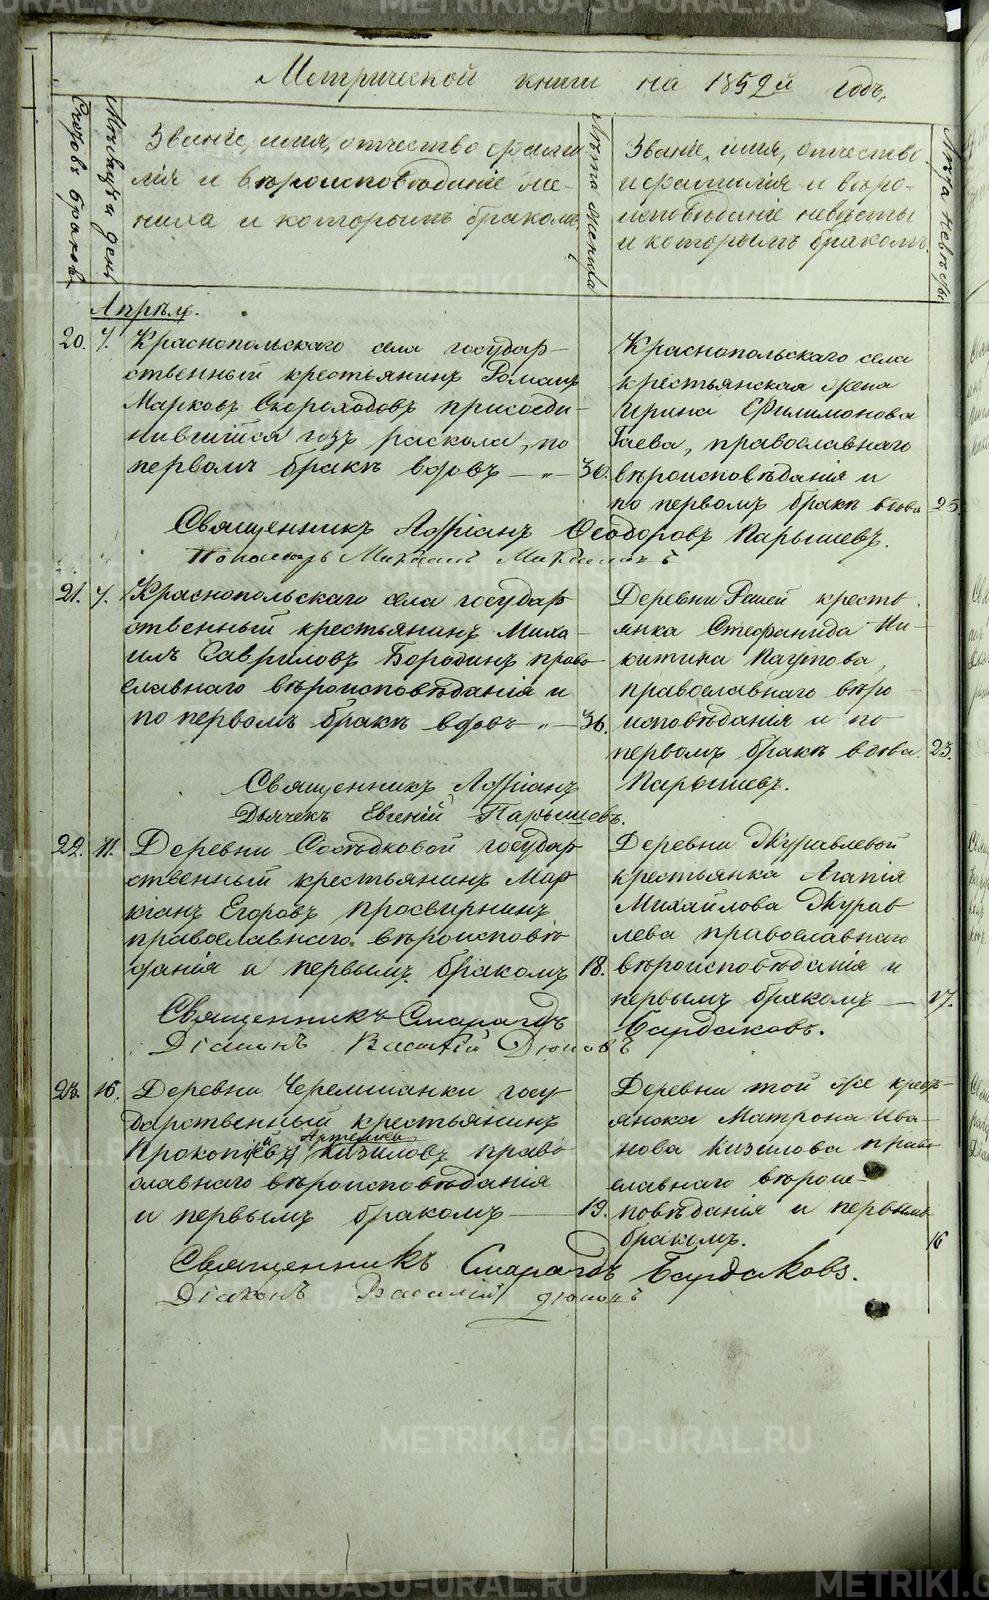 Метрической книги на 1892й годъ,
Счотъ браковъ.
Мѣсяцъ и день
Званіе, имя, отчество фами
лія и вѣроисповѣданіе же-
ниха и которымъ бракомъ
Лѣта жениха
Званіе, имя, отчество
и фамилія и вѣро-
исповѣданіе невѣсты
и которымъ бракомъ.
Лѣта невѣсты
Апрѣль.
20. 7. Краснопольскаго села государ-
ственный крестьянинъ Романъ
Марковъ Скороходовъ присоеди-
нившійся изъ раскола, по
первомъ бракѣ вдовъ — „ — 30.
Краснопольскаго села
крестьянская жена
Ирина Филимонова
Гаева, православнаго
вѣроисповѣданія и
по первомъ бракѣ вдова 25.
Священникъ Адріанъ Ѳеодоровъ Парышевъ.
Михаилъ
21. 7. Краснопольскаго села государ
ственный крестьянинъ Миха-
илъ Гавриловъ Бородинъ право
славнаго вѣроисповѣданія и
по первомъ бракѣ вдовъ „ — 36.
Деревни Рашей кресть
янка Стефанида Ни-
китина Паутова,
православнаго вѣро-
исповѣданія и по
первомъ бракѣ вдова. 23.
Священникъ Адріанъ Парышевъ.
Дьячекъ Евгеній Парышевъ.
22. 11. Деревни Сосѣдковой государ
ственный крестьянинъ Мар
кіанъ Егоровъ Просвирнинъ
православнаго вѣроисповѣ
данія и первымъ бракомъ 18.
Деревни Журавлевой
крестьянка Агапія
Михайлова Журав
лева православнаго
вѣроисповѣданія и
первымъ бракомъ — 17.
Священникъ Смарагдъ Бардаковъ.
Діаконъ Василій
23. 16. Деревни Черемшанки госу
дарственный крестьянинъ
Артемьевъ
Прокопій Кизиловъ право
славнаго вѣроисповѣданія
и первымъ бракомъ — 19.
Деревни той же кресть-
янка Матрона Ива-
нова Кизилова право
славнаго вѣроис-
повѣданія и первымъ
бракомъ. 16
Священникъ Смарагдъ Бардаковъ.
Діаконъ Василій